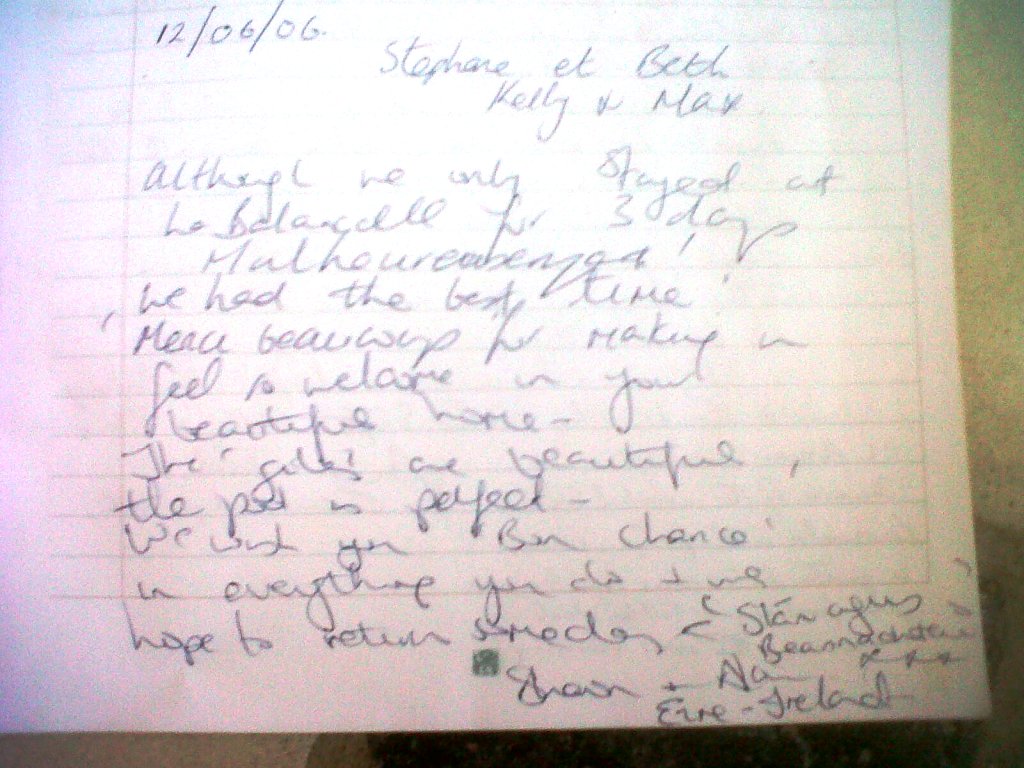 12/06/06.
Stephane et Beth
Kelly & Max
Although we only stayed at
La Balancelle for 3 days
'Malheureusement'
, we had the best time!
Merci beaucoup for making us
feel so welcome in your
beautiful home -
The gites are beautiful,
the pool is perfect -
We wish you 'Bon chance'
in everything you do & we
hope to return someday - ( Slán agus
Beannachtaí
xxx
+
Eire - Ireland